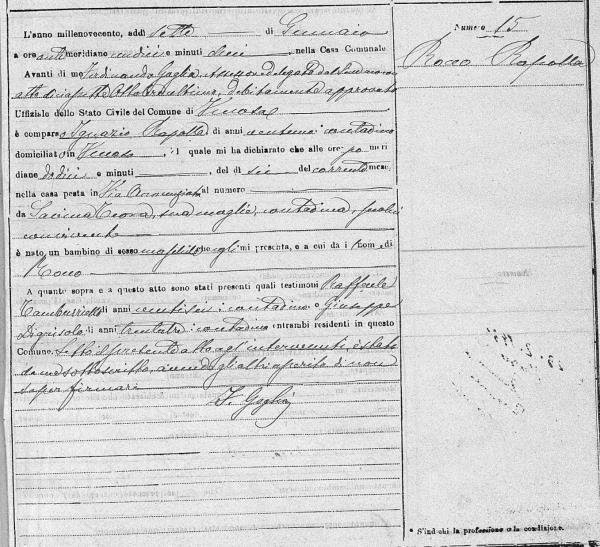 L'anno millenovecento, addì sette di Gennaio
a ore antimeridiane undici e minuti dieci, nella Casa Comunale.
Avanti di me Ferdinando Goglia, Assessore delegato dal Sindaco con
atto di sette Ottobre ultimo, debitamente approvato
Uffiziale dello Stato Civile del Comune di Venosa
è comparso Ignazio Rapolla di anni ventuno contadino
domiciliato in Venosa, il quale mi ha dichiarato che alle ore pomeri
diane dodici e minuti del dì sei del corrente mese,
nella casa posta in Via Annunziata al numero
da Savina Teora, sua moglie, contadina, seco lui
convivente
è nato un bambino di sesso maschile che egli mi presenta, e a cui dà i nome di
Rocco
A quanto sopra e a questo atto sono stati presenti quali testimoni Raffaele
Tamburriello di anni ventisei contadino e Giuseppe
Digrisolo di anni trentatre contadino entrambi residenti in questo
Comune. Letto il presente atto agl'intervenuti, è stato
da me sottoscritto, avendo gli altri asserito di non
saper firmare
F. Goglia
Numero 15
Rocco Rapolla
* S'indichi la professione o la condizione.